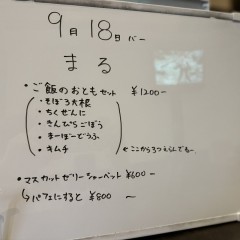 9月18日バー
まる
・ご飯のおともセット ¥1200-
・そぼろ大根
・ちくぜんに
・きんぴらごぼう
・まーぼーどうふ
・キムチ
←ここから3つえらんでもー
・マスカットゼリーシャーベット ¥600-
↳パフェにすると ¥800 ～